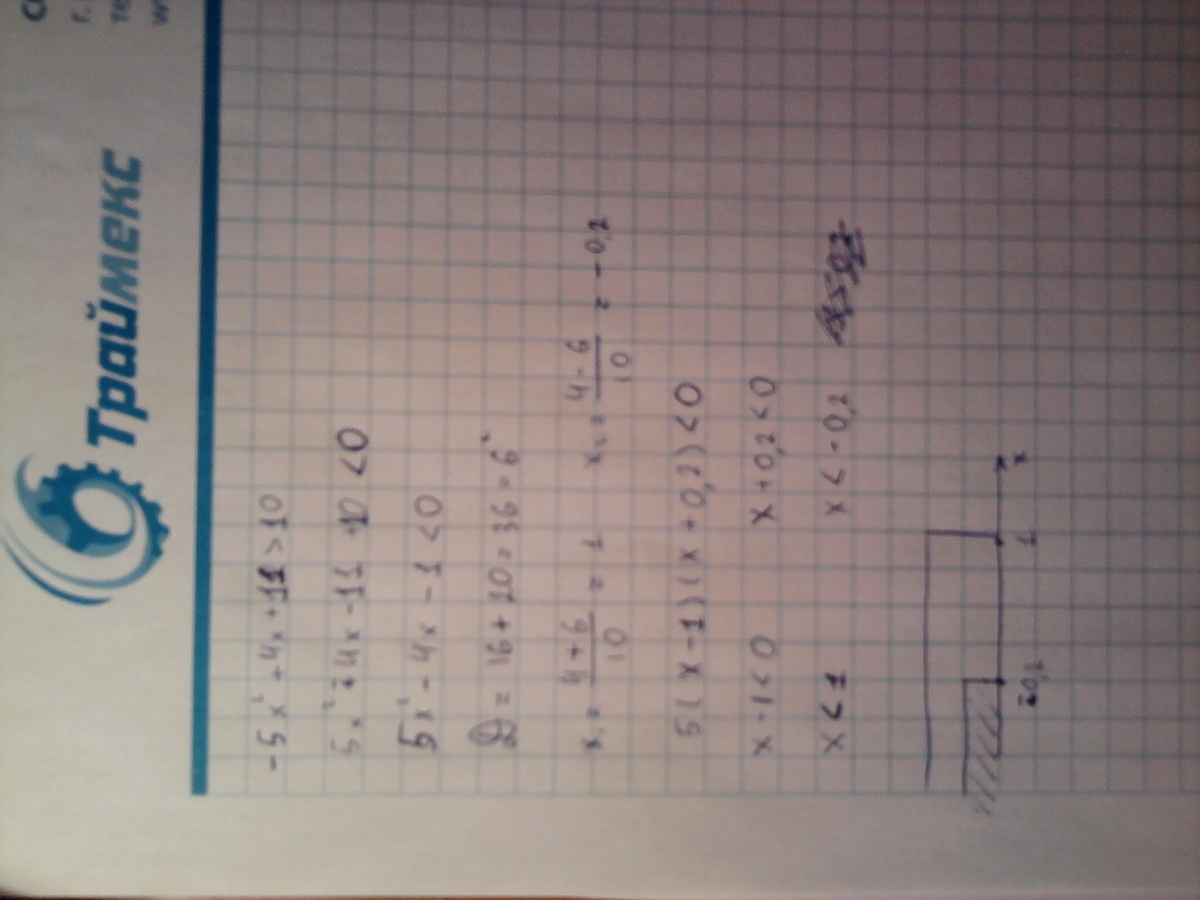 Траймекс
-5x² - 4x + 11 > 10
5x² - 4x - 11 + 10 < 0
5x² - 4x - 1 < 0
D = 16 + 20 = 36 = 6²
x₁ = (4+6)/10 = 1 x₂ = (4-6)/10 = -0,2
5(x-1)(x+0,2) < 0
x-1 < 0 x+0,2 < 0
x < 1 x < -0,2
-0,2 1 x